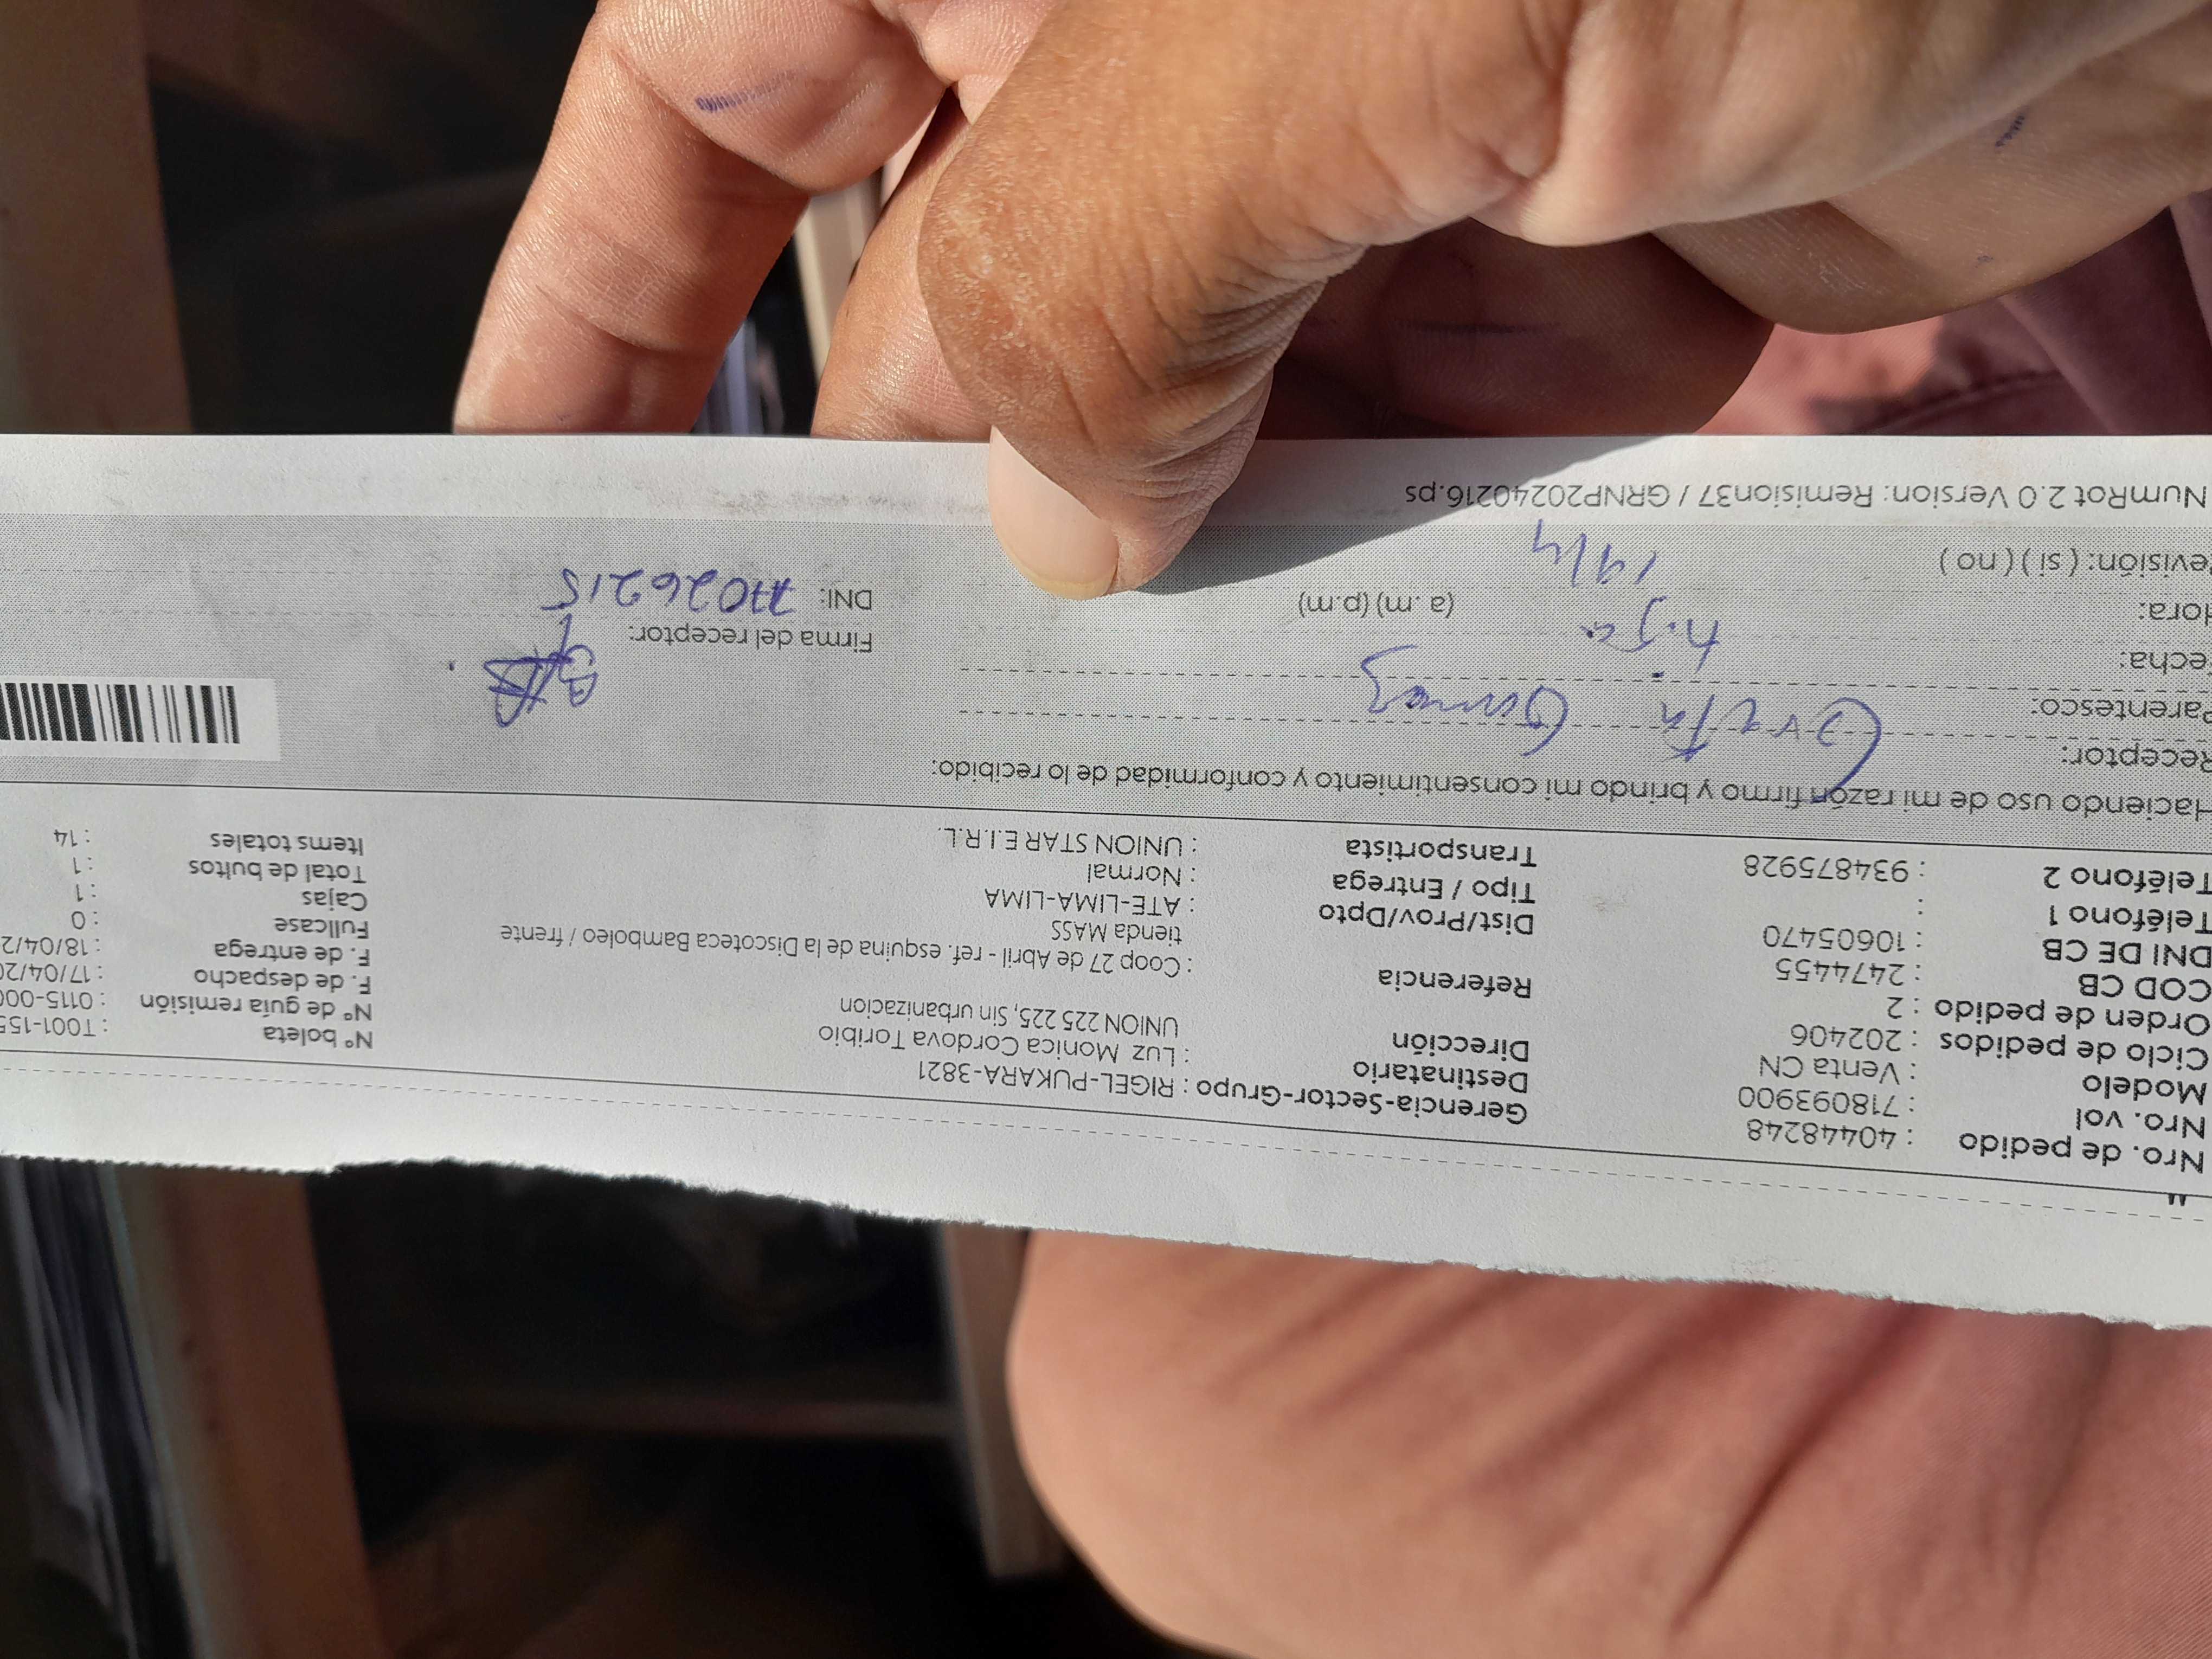 Nro. de pedido : 40448248
Nro. vol : 718093900
Modelo : Venta CN
Ciclo de pedidos : 202406
Orden de pedido : 2
COD CB : 2474455
DNI DE CB : 10605470
Teléfono 1 :
Teléfono 2 : 934875928
Gerencia-Sector-Grupo : RIGEL-PUKARA-3821
Destinatario : Luz Monica Cordova Toribio
Dirección UNION 225 225, Sin urbanizacion
Referencia : Coop 27 de Abril - ref. esquina de la Discoteca Bamboleo / frente
tienda MASS
Dist/Prov/Dpto : ATE-LIMA-LIMA
Tipo / Entrega : Normal
Transportista : UNION STAR E.I.R.L.
N° boleta : T001-155
N° de guía remisión : 0115-000
F. de despacho : 17/04/20
F. de entrega : 18/04/2
Fullcase : 0
Cajas : 1
Total de bultos : 1
Items totales : 14
Haciendo uso de mi razón firmo y brindo mi consentimiento y conformidad de lo recibido:
Receptor:
Parentesco: hija
Fecha: 19/4
Hora: (a. m) (p.m)
Revisión: ( si ) ( no )
Firma del receptor:
DNI: 77026215
NumRot 2.0 Version: Remision37 / GRNP20240216.ps